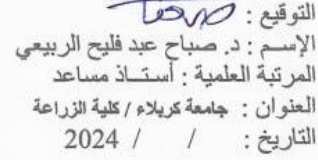 التوقيع :
الإسم : د. صباح عبد فليح الربيعي
المرتبة العلمية : أستاذ مساعد
العنوان : جامعة كربلاء / كلية الزراعة
التاريخ : / / 2024